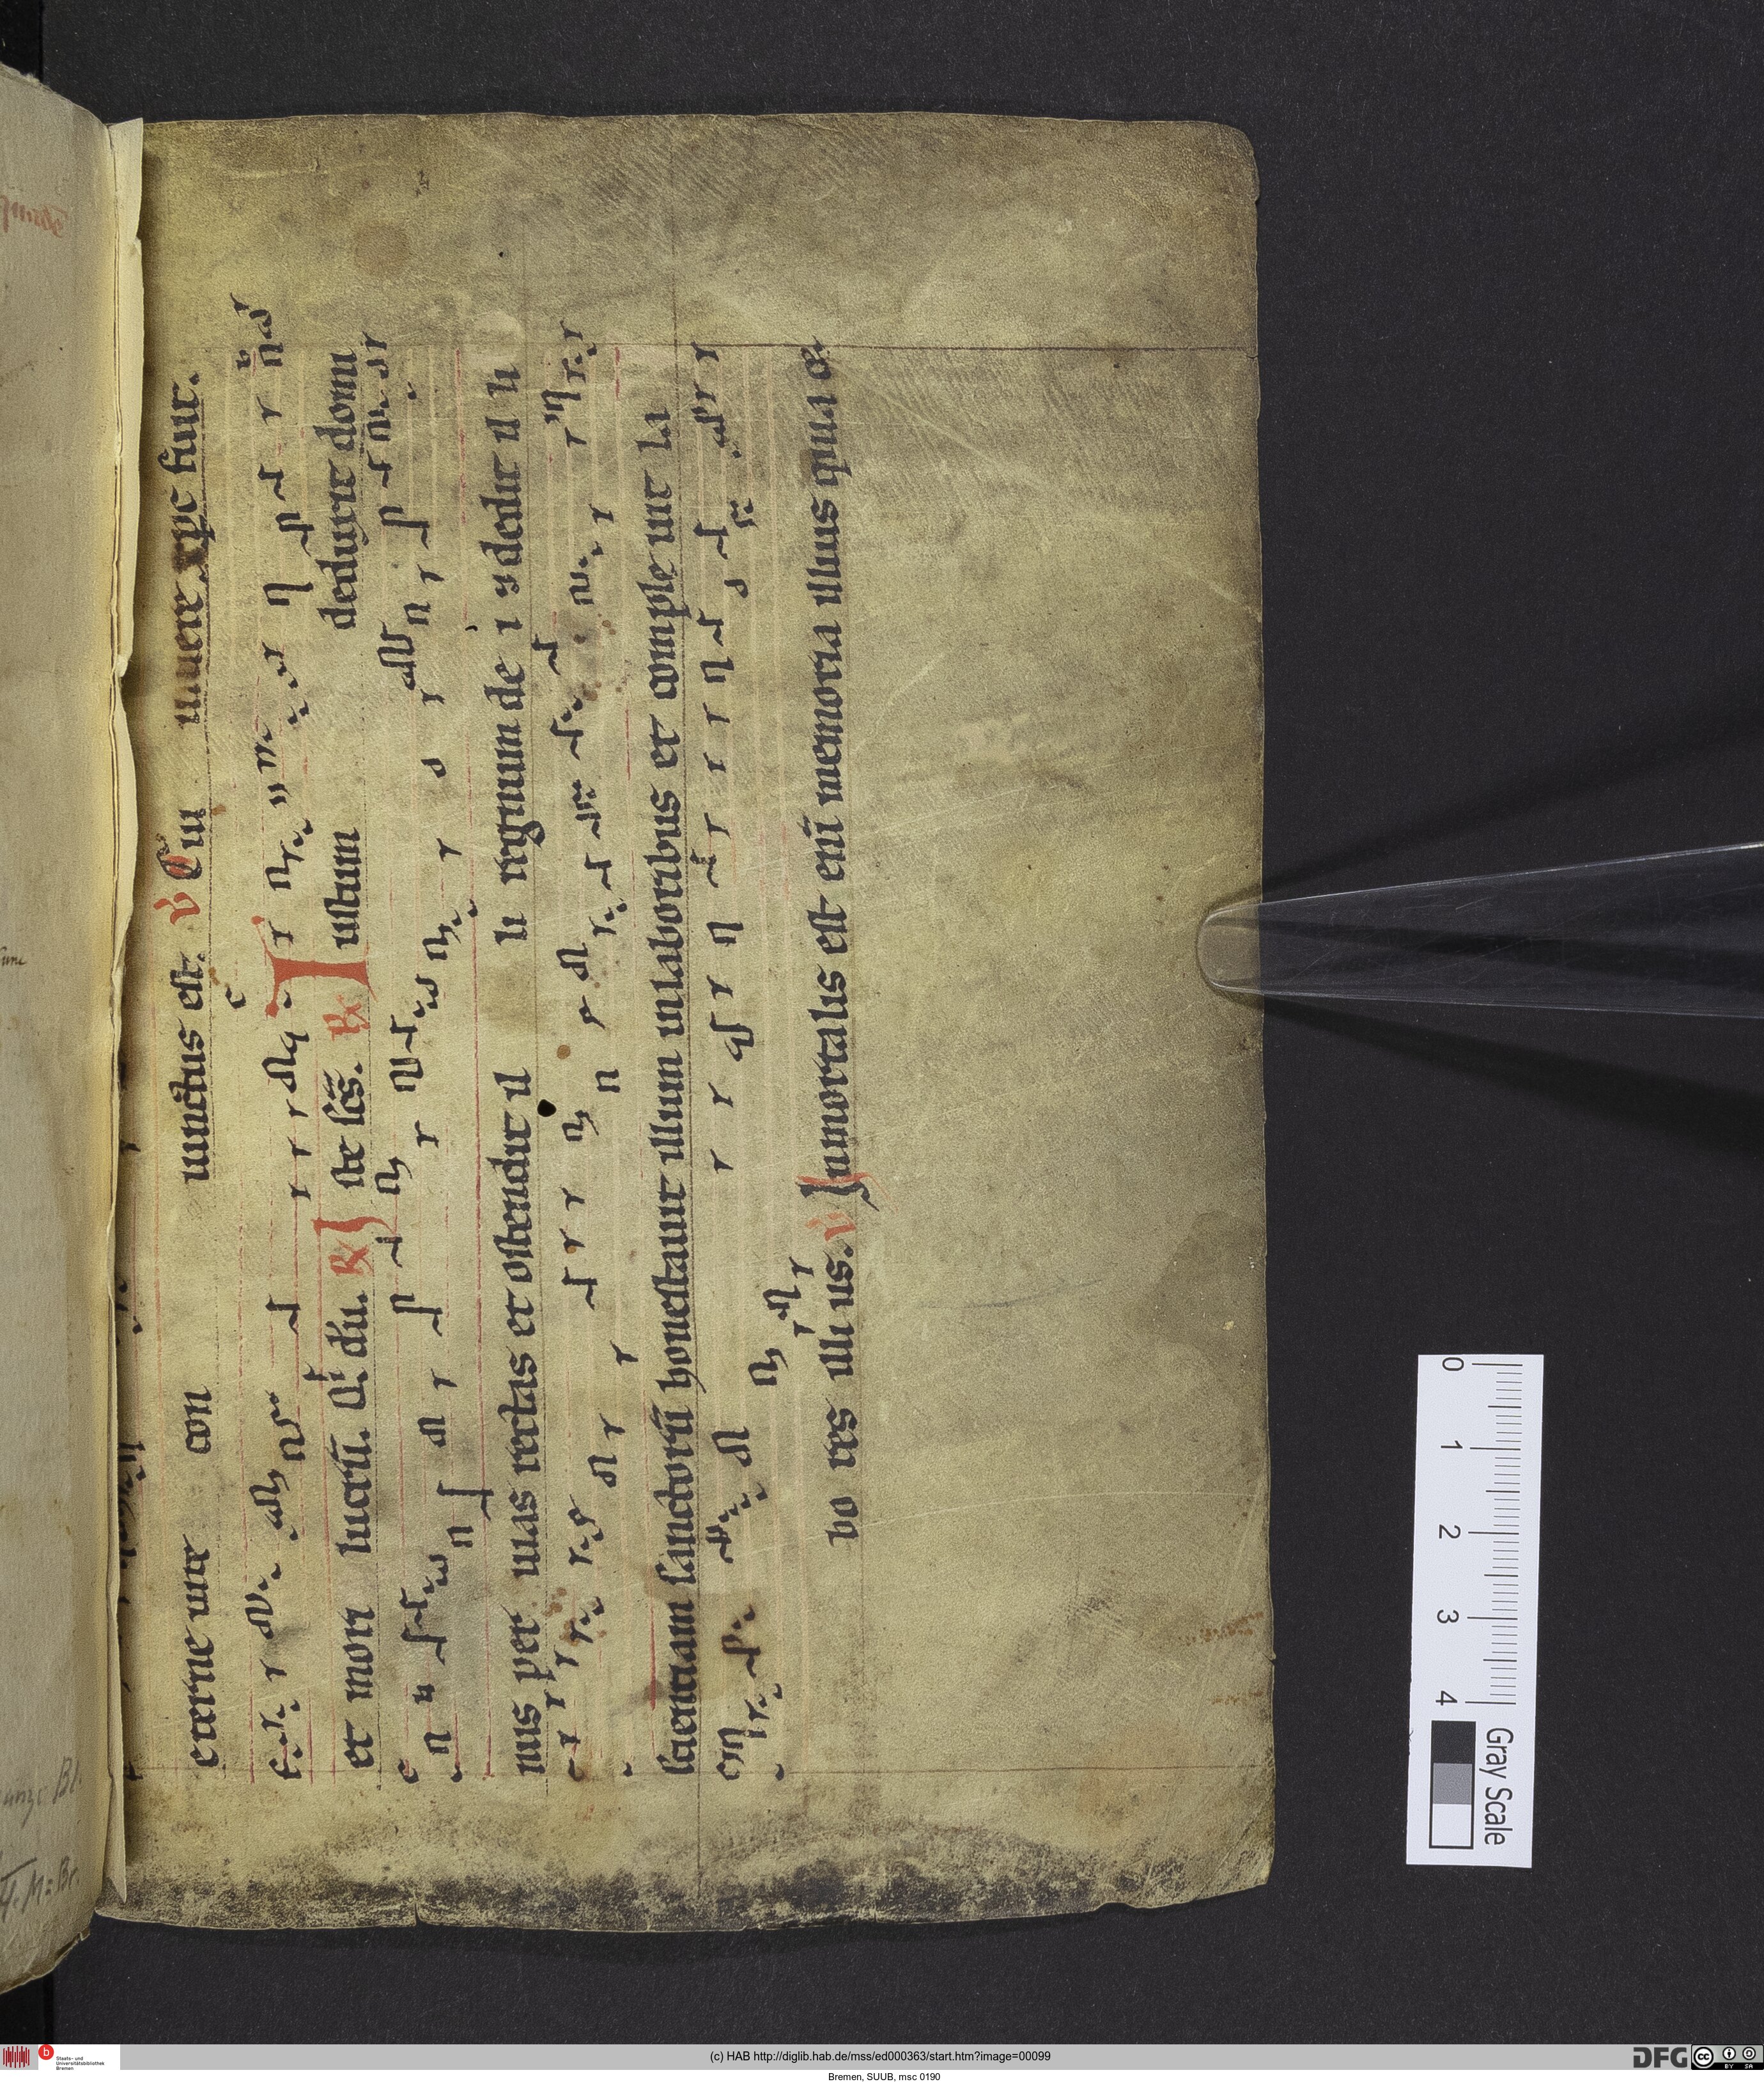 eterne uite con iunctus est. v Cui uiuere xpc fuit.
et mori lucrū. Q'i. diu. R Iste scs. R Iustum deduxit domi
nus per uias rectas et ostendit il li regnum de i & dedit il li
scientiam sanctorū honestauit illum in laboribus et comple uit la
bo res illi us. v Inmortalis est enī memoria illius qua
0 1 2 3 4
Gray Scale
(c) HAB http://diglib.hab.de/mss/ed000363/start.htm?image=00099
Bremen, SUUB, msc 0190
b
Staats- und
Universitätsbibliothek
Bremen
DFG
cc
BY SA